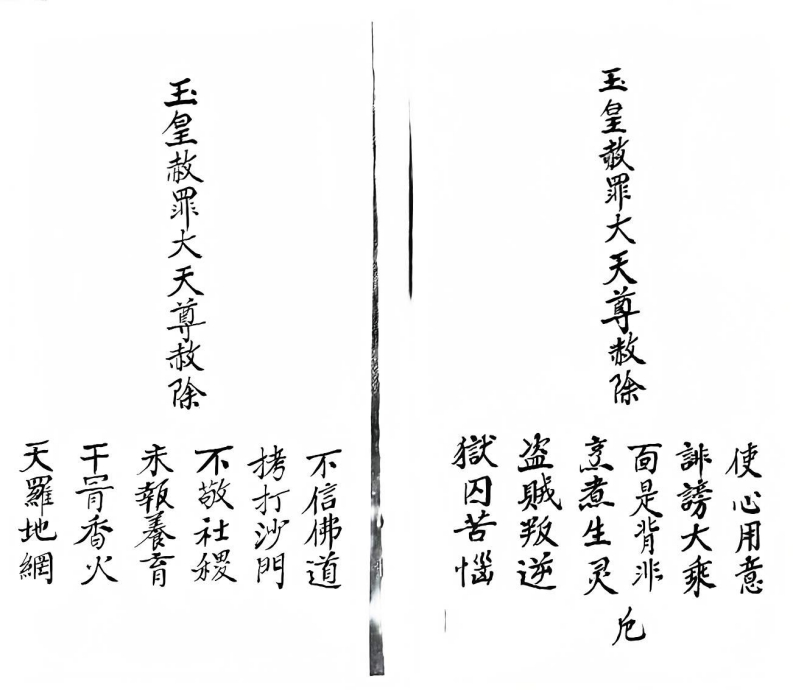 玉皇赦罪大天尊赦除
使心用意
誹謗大乘
面是背非
烹煮生灵
盗賊叛逆
獄囚苦惱
玉皇赦罪大天尊赦除
不信佛道
拷打沙門
不敬社稷
未報養育
干冐香火
天羅地網